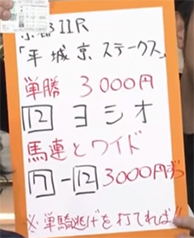 京都11R
「平城京ステークス」
単勝 3000円
12 ヨシオ
馬連とワイド
7-12 3000円ずつ
※単騎逃げを打てれば!!